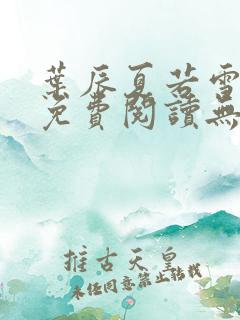 葉辰夏若雪
免費閱讀無
推古天皇
未經同意禁止轉載